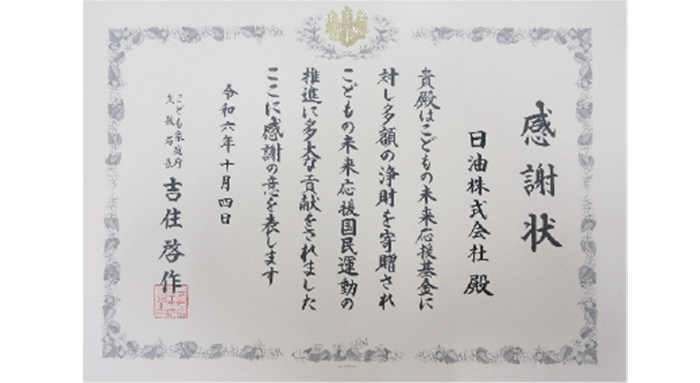 感謝状
日油株式会社 殿
貴殿はこどもの未来応援基金に
対し多額の浄財を寄贈され
こどもの未来応援国民運動の
推進に多大な貢献をされました
ここに感謝の意を表します
令和六年十月四日
こども家庭庁
支援局長
吉住啓作